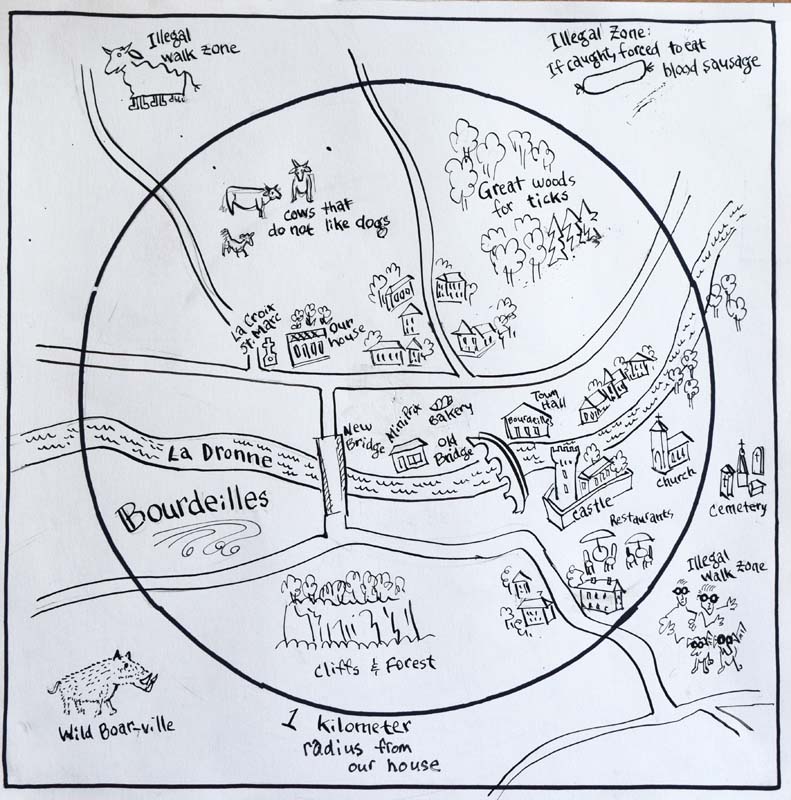 Illegal
walk zone
Illegal Zone:
If caught, forced to eat
blood sausage
Great woods
for ticks
cows that
do not like dogs
La Croix
St. Marc
Our
house
New
Bridge
Mini Prix
Bakery
Old
Bridge
Town
Hall
Bourdeilles
La Dronne
Bourdeilles
castle
church
Cemetery
Restaurants
Illegal
walk zone
Cliffs & Forest
Wild Boar-ville
1 kilometer
radius from
our house